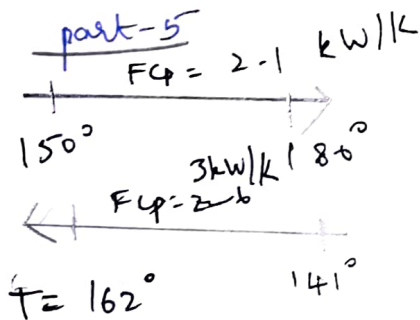 part-5
FCp = 2.1 kW/K
150° 180°
3kW/K
FCp =
T = 162° 141°